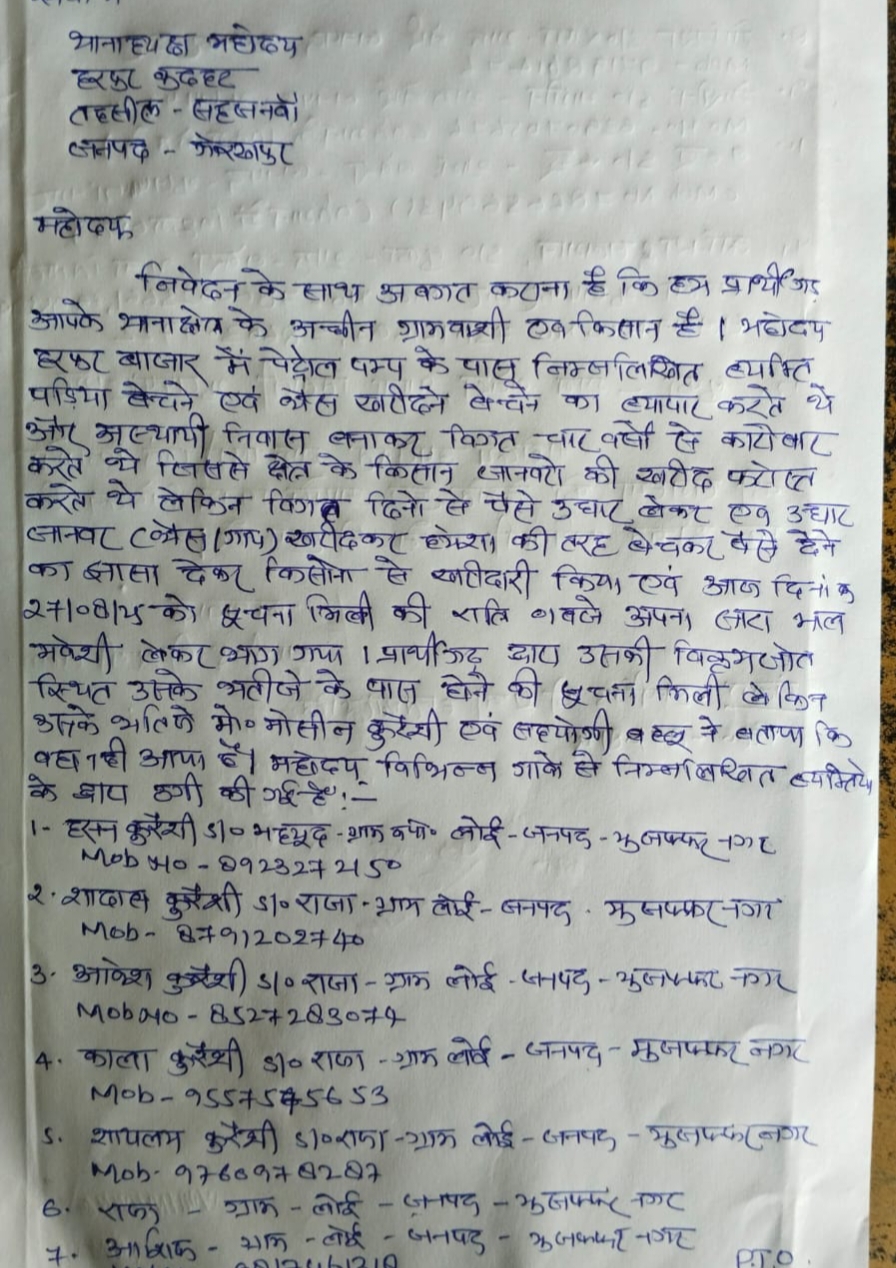 थानाध्यक्ष महोदय
हरपुर बुदहट
तहसील - सहजनवां
जनपद - गोरखपुर
महोदय,
निवेदन के साथ अवगत कराना है कि हम प्रार्थीगढ़
आपके थाना क्षेत्र के अन्धीन ग्रामवाशी एव किसान है । महोदय
हरपुर बाजार में पेट्रोल पम्प के पास निम्नलिखित व्यक्ति
पड़िया बेचने एवं भैस खरीदने बेचने का व्यापार करते थे
और अस्थायी निवास बनाकर विगत चार वर्षो से कारोबार
करते थे जिससे क्षेत्र के किसान जानवरो की खरीद फरोख्त
करते थे लेकिन विगत दिनो से पैसे उधार लेकर एव उधार
जानवर (भैस/गाय) खरीदकर हमेशा की तरह बेचकर पैसे देने
का झासा देकर किसानो से खरीदारी किया एवं आज दिनांक
27/08/25 को सूचना मिली की रात्रि 9 बजे अपना सारा माल
मवेशी लेकर भाग गया । प्रार्थीगढ़ द्वारा उसकी
स्थित उसके भतीजे के पास होने की सूचना मिली लेकिन
उसके भतिजे मो० मोसीन कुरैशी एवं सहयोगी बहलू ने बताया कि
वहा नही आया है। महोदय, विभिन्न गांवो से निम्नलिखित व्यक्तियो
के द्वारा ठगी की गई है :-
1- हसन कुरैशी S/० महमूद - ग्राम व पो० लोई - जनपद - मुजफ्फर नगर
Mob No - 8923272150
2. शादाब कुरैशी S/० राजा - ग्राम लोई - जनपद - मुजफ्फर नगर
Mob - 8791202740
3. आवेश कुरैशी S/० राजा - ग्राम लोई - जनपद - मुजफ्फर नगर
Mob No - 8527283074
4. काला कुरैशी S/० राजा - ग्राम लोई - जनपद - मुजफ्फर नगर
Mob - 9557545653
5. कुरैशी S/० राजा - ग्राम लोई - जनपद - मुजफ्फर नगर
Mob - 9760978287
6. राजा - ग्राम - लोई - जनपद - मुजफ्फर नगर
7. आशिक - ग्राम - लोई - जनपद - मुजफ्फर नगर
P.T.O.